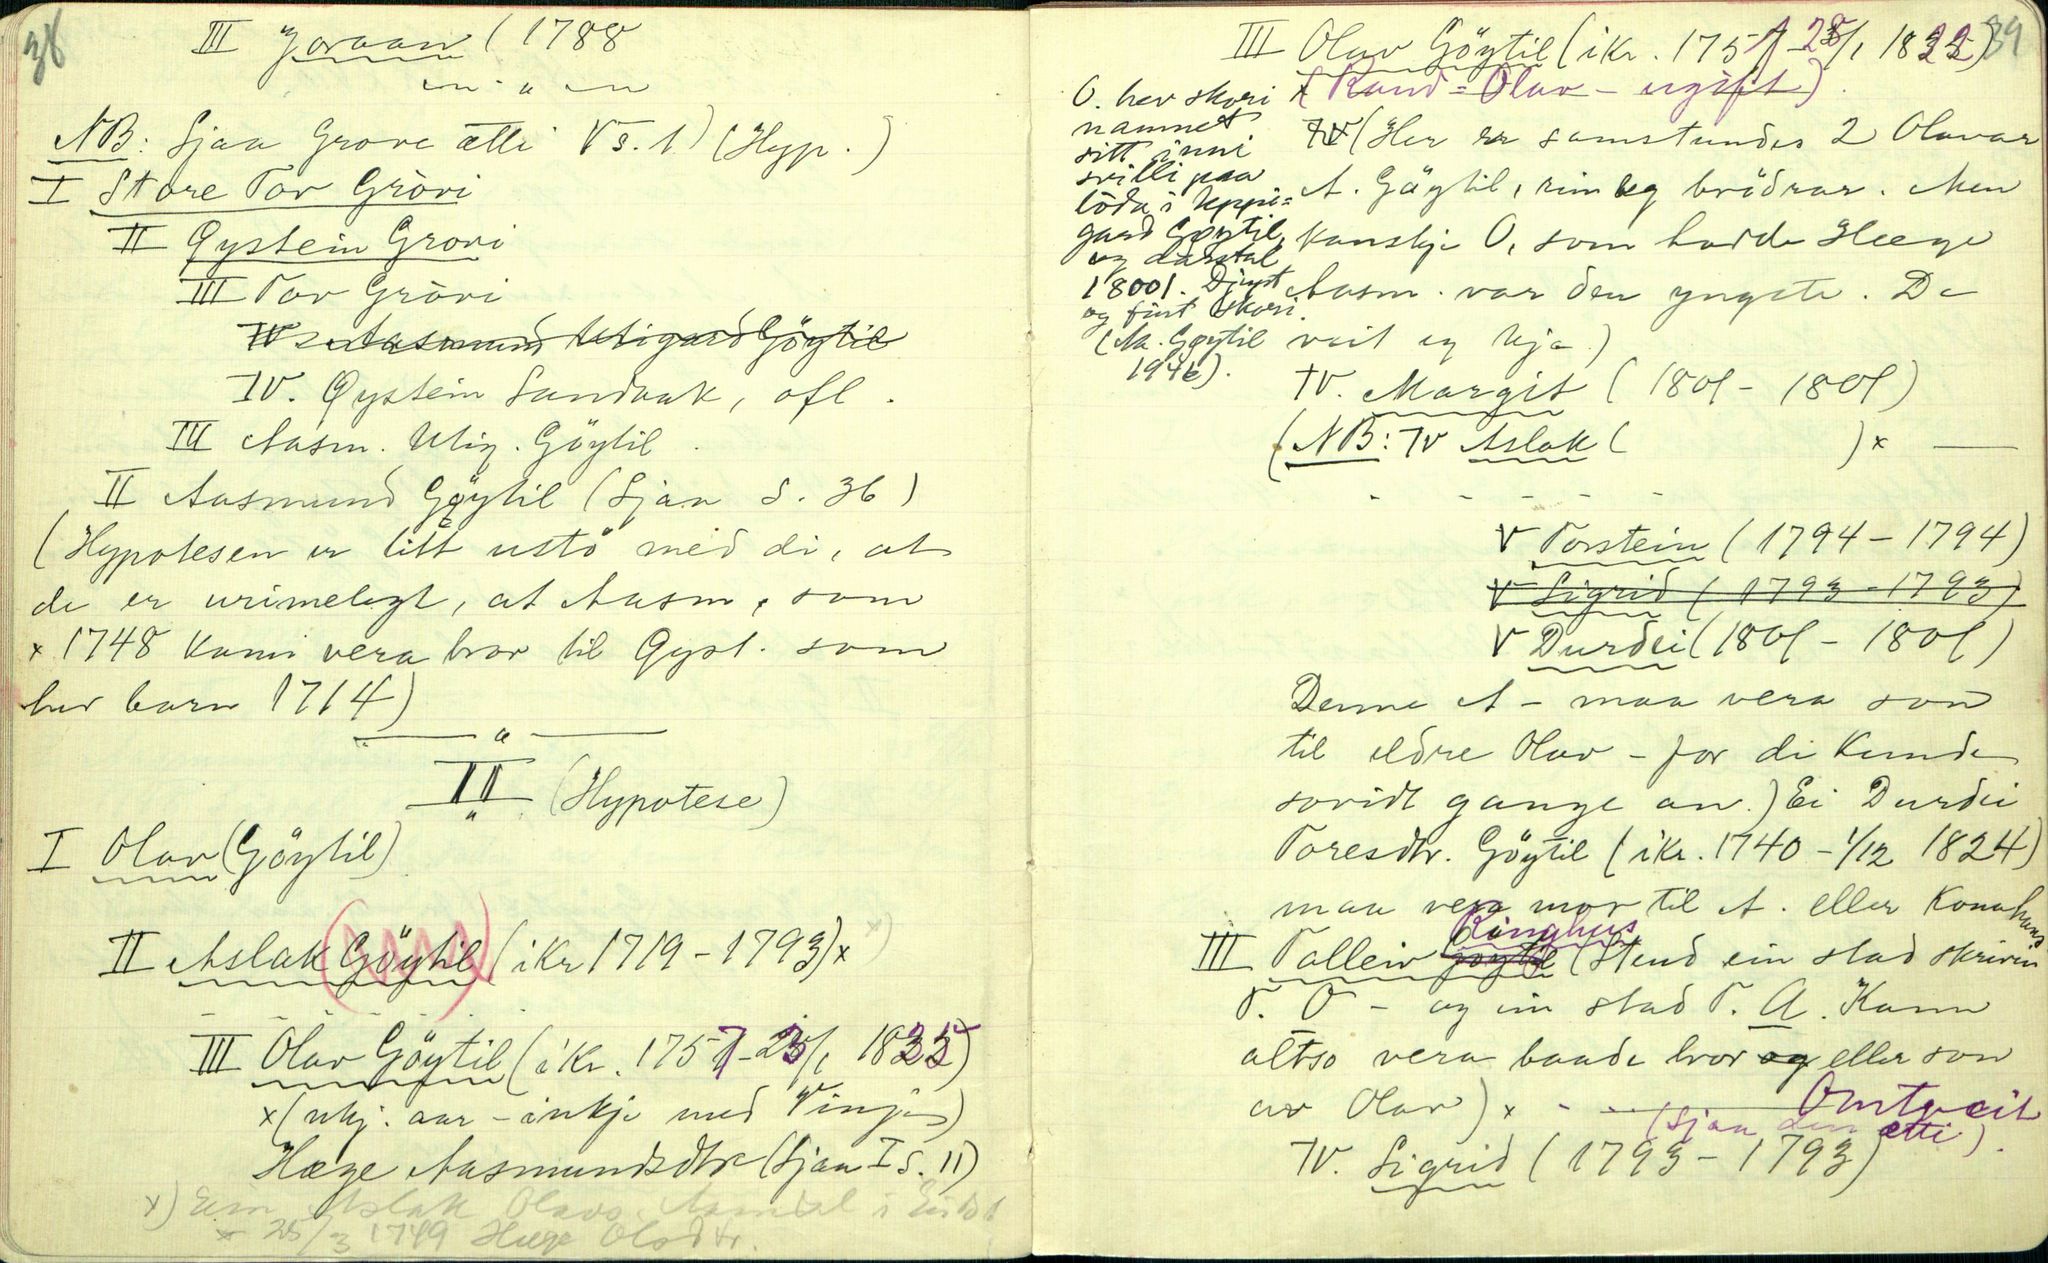 38
III Joraan (1788
— " —
NB: Sjaa Grove ætti V s. 1) (Hyp.)
I Store Tor Gròvi
II Øystein Grovi
III Tov Gròvi
IV Aasmund Utigard Göytil
IV. Øystein Sandaak, ofl.
III Aasm. Utig. Göytil
II Aasmund Göytil (Sjaa S. 36)
(Hypotesen er litt ustö med di, at
de er urimelegt, at Aasm, som
x 1748 kann vera bror til Øyst. som
hev barn 1714)
— " —
II (Hypotese)
I Olav (Göytil)
II Aslak Göytil (ikr 1719 - 1793) x x)
III Olav Göytil (ikr. 1757 - 23/1 1835)
x (ukj. aar - inkje med Vinje)
Hæge Aasmundsdtr (Sjaa I S. 11)
x) Ein Aslak Olavs.
x 25/3 1749 Hæge Olsdtr.
39
III Olav Göytil (ikr. 1757 - 28/1 1832)
x (Rand-Olav - ugift)
O. hev skori
namnet
sitt inni
svilli paa
löda i Uppi=
gard Göytil,
og därstal
1800. Djupt
og fint skori.
(Aa. Göytil
1946).
IV (Her er samstundes 2 Olavar
A. Göytil, rimleg brödrar. Men
kanskje O, som hadde Hæge
Aasm. var den yngste. De
veit eg ikje)
IV. Margit (1801 - 1801)
(NB: IV Aslak ( ) x —
- - - - -
V Torstein (1794 - 1794)
V Sigrid (1793 - 1793)
V Durdei (1801 - 1801)
Denne A - maa vera son
til eldre Olav - for di kunde
sovidt gange an.) Ei Durdei
Toresdtr. Göytil (ikr. 1740 - 1/12 1824)
maa vera mor til A. eller kona hans
III Talleiv Göytil Ringhus (Stend ein stad skriven
T. O - og ein stad T. A. Kann
altso vera baade bror og eller son
av Olav) x - - Omtveit
(Sjaa den ætti).
IV. Sigrid (1793 - 1793)